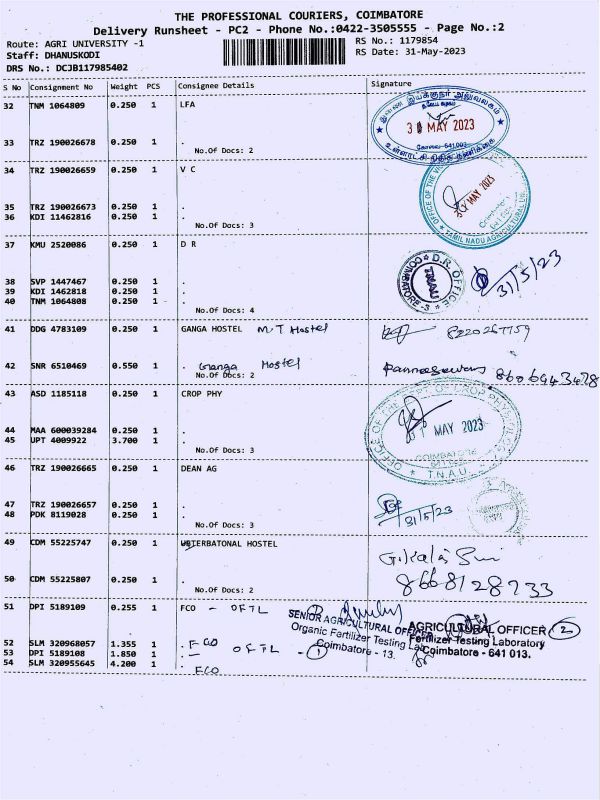 THE PROFESSIONAL COURIERS, COIMBATORE
Delivery Runsheet - PC2 - Phone No.:0422-3505555 - Page No.:2
Route: AGRI UNIVERSITY -1 RS No.: 1179854
Staff: DHANUSKODI RS Date: 31-May-2023
DRS No.: DCJB117985402
S No Consignment No Weight PCS Consignee Details Signature
32 TNM 1064809 0.250 1 LFA
MAY 2023
33 TRZ 190026678 0.250 1 .
No.Of Docs: 2
34 TRZ 190026659 0.250 1 V C
MAY 2023
OFFICE OF THE
TAMIL NADU AGRICULTURAL
35 TRZ 190026673 0.250 1 .
36 KDI 11462816 0.250 1 .
No.Of Docs: 3
37 KMU 2520086 0.250 1 D R
D.R. OFFICE
TNAU
COIMBATORE-3
31/5/23
38 SVP 1447467 0.250 1 .
39 KDI 1462818 0.250 1 .
40 TNM 1064808 0.250 1 .
No.Of Docs: 4
41 DDG 4783109 0.250 1 GANGA HOSTEL M.T Hostel
42 SNR 6510469 0.550 1 . Ganga Hostel
8606943478
No.Of Docs: 2
43 ASD 1185118 0.250 1 CROP PHY
OFFICE OF THE
MAY 2023
COIMBATORE
T.N.A.U.
44 MAA 600039284 0.250 1 .
45 UPT 4009922 3.700 1 .
No.Of Docs: 3
46 TRZ 190026665 0.250 1 DEAN AG
47 TRZ 190026657 0.250 1 .
48 PDK 8119028 0.250 1 .
31/5/23
No.Of Docs: 3
49 CDM 55225747 0.250 1 HOSTEL
50 CDM 55225807 0.250 1 .
8668128733
No.Of Docs: 2
51 DPI 5189109 0.255 1 FCO - OFTL
SENIOR AGRICULTURAL OFFICER
Organic Fertilizer Testing Lab
Coimbatore - 13.
AGRICULTURAL OFFICER 2
Fertilizer Testing Laboratory
Coimbatore - 641 013.
52 SLM 320968057 1.355 1 . FCO
53 DPI 5189108 1.850 1 . OFTL - 1
54 SLM 320955645 4.200 1 . FCO